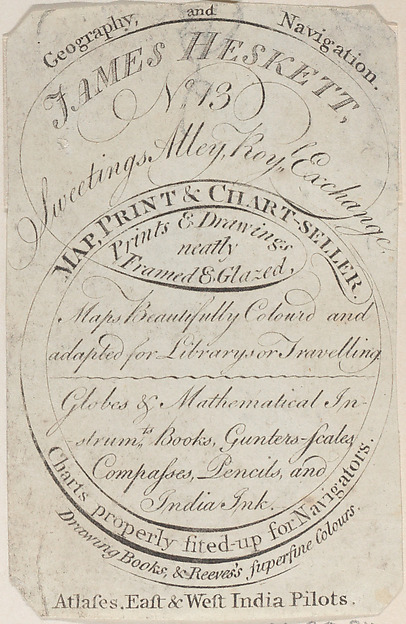 Geography, and Navigation.
JAMES HESKETT,
No. 13
Sweetings Alley, Royl. Exchange,
MAP, PRINT & CHART-SELLER.
Prints & Drawings
neatly
Framed & Glazed,
Maps Beautifully Colourd and
adapted for Librarys or Travelling
Globes & Mathematical In-
-strumts. Books, Gunters-ſcales,
Compaſses, Pencils, and
India Ink.
Charts properly fited-up for Navigators.
Drawing Books, & Reeves's ſuperfine Colours.
Atlaſes, Eaſt & Weſt India Pilots.